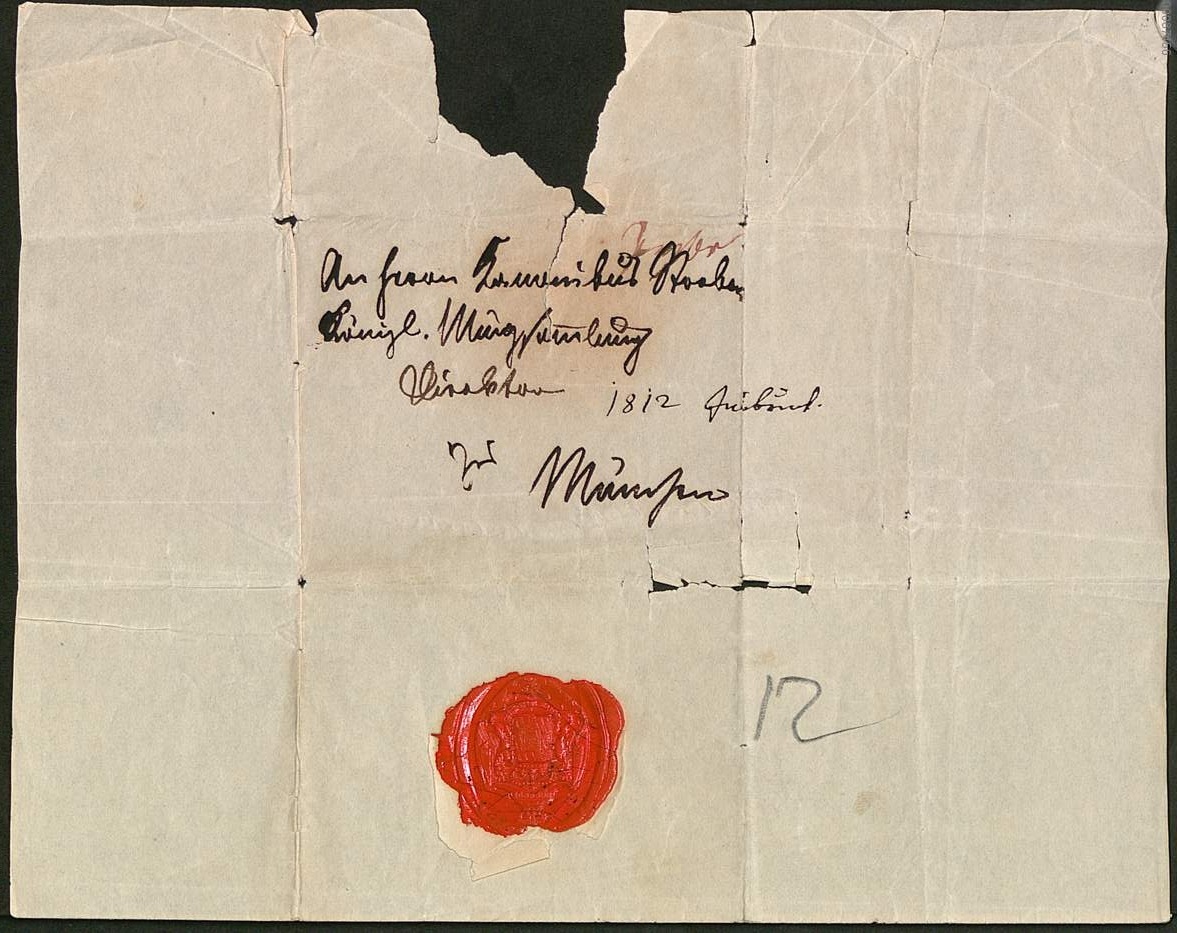 An Herrn Kanonikus Streber
Königl. Münzsamlung
Direktor
1812
zu München
12